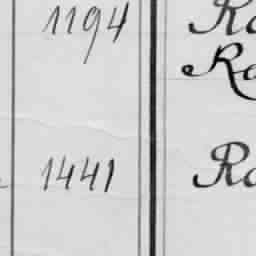 1194 Ra
Ro
1441 Ra